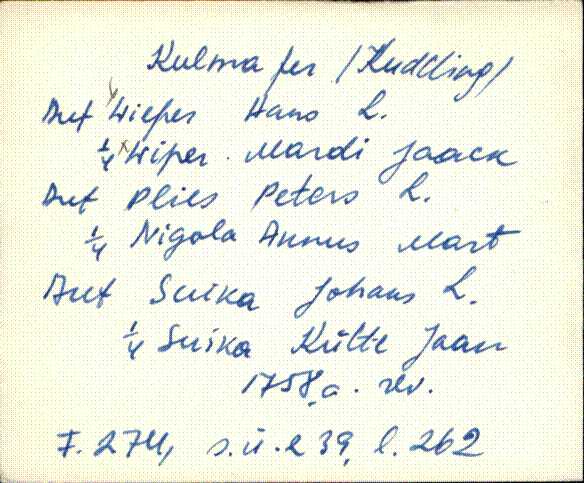 Kulma per (Kudding)
Auf Wieper Hans L.
1/4 Wiper Mardi Jaack
Auf Plies Peters L.
1/4 Nigola Annus Mart
Auf Suika Johans L.
1/4 Suika Külte Jaan
1758 a. rev.
F. 274, s.ü. 239, l. 262